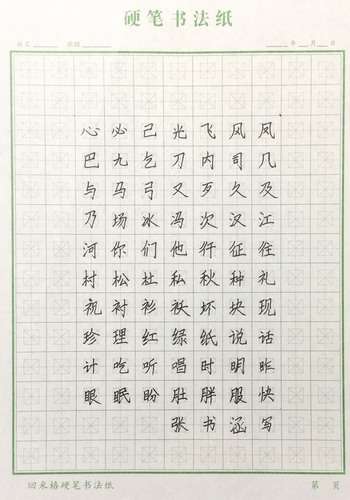 硬笔书法纸
姓名 班级 年 月 日
心必己光飞风凤
巴九乞刀内司几
与马弓又歹久及
乃场冰冯次汉江
河你们他仟征住
村松杜私秋种礼
祝衬衫袄坏块现
珍理红绿纸说话
计吃听唱时明昨
眼眠盼肚胖服快
张书涵写
回米格硬笔书法纸 第 页